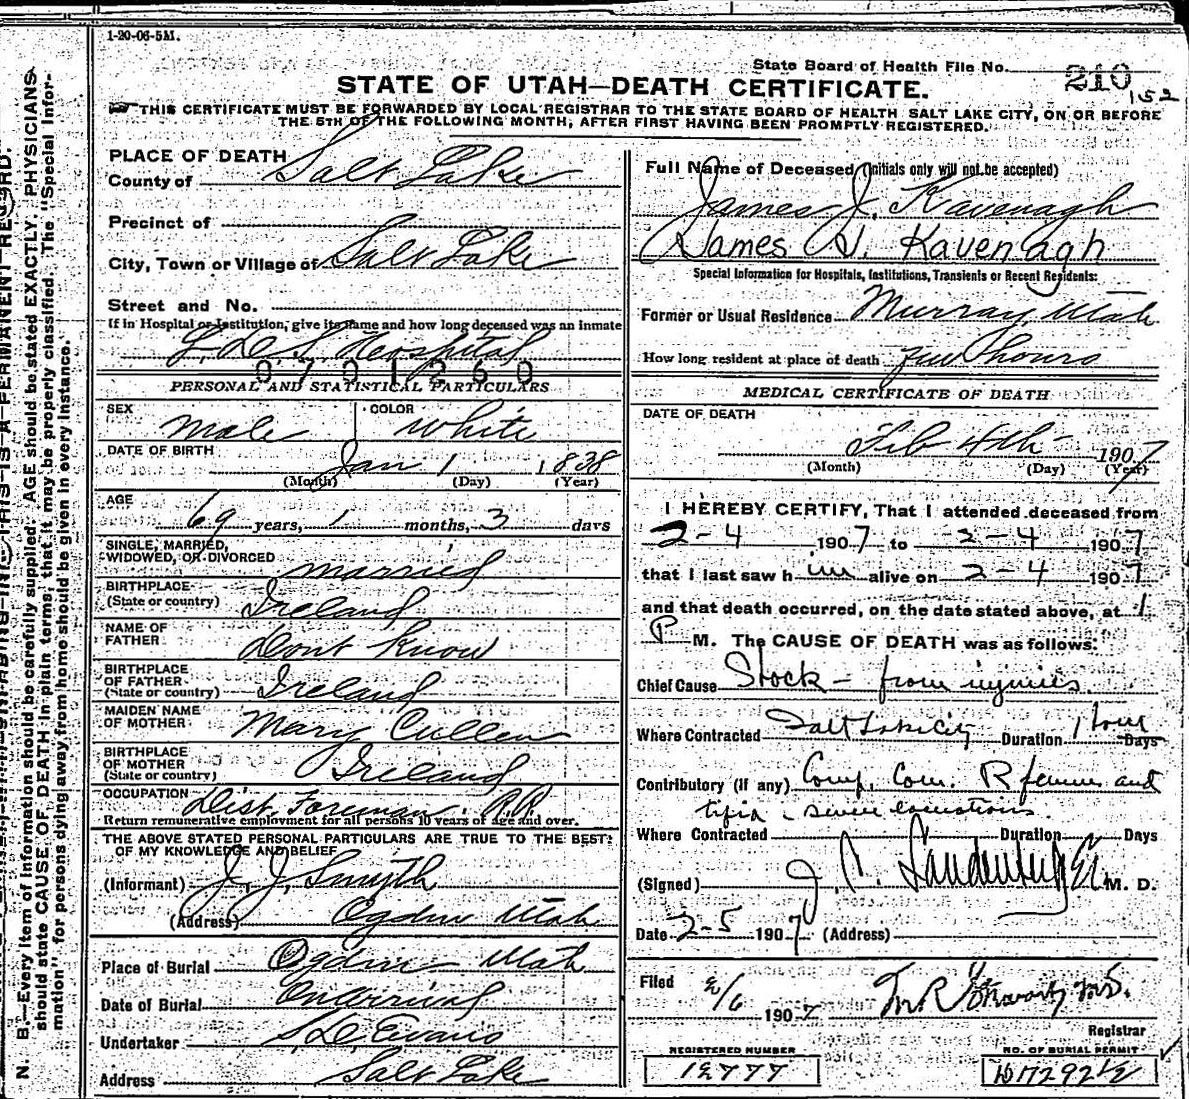 1-20-06-5M.
State Board of Health File No. 210
152
STATE OF UTAH—DEATH CERTIFICATE.
THIS CERTIFICATE MUST BE FORWARDED BY LOCAL REGISTRAR TO THE STATE BOARD OF HEALTH SALT LAKE CITY, ON OR BEFORE
THE 5TH OF THE FOLLOWING MONTH, AFTER FIRST HAVING BEEN PROMPTLY REGISTERED.
PLACE OF DEATH
County of Salt Lake
Precinct of
City, Town or Village of Salt Lake
Street and No.
If in Hospital or Institution, give its name and how long deceased was an inmate
L.D.S. Hospital
0701260
PERSONAL AND STATISTICAL PARTICULARS
SEX Male COLOR White
DATE OF BIRTH Jan 1 1838
(Month) (Day) (Year)
AGE 69 years, 1 months, 3 days
SINGLE, MARRIED,
WIDOWED, OR DIVORCED married
BIRTHPLACE
(State or country) Ireland
NAME OF
FATHER Dont Know
BIRTHPLACE
OF FATHER
(State or country) Ireland
MAIDEN NAME
OF MOTHER Mary Cullen
BIRTHPLACE
OF MOTHER
(State or country) Ireland
OCCUPATION Dist. Foreman. R.R
Return remunerative employment for all persons 10 years of age and over.
THE ABOVE STATED PERSONAL PARTICULARS ARE TRUE TO THE BEST
OF MY KNOWLEDGE AND BELIEF
(Informant) J. J. Smyth
(Address) Ogden Utah
Place of Burial Ogden Utah
Date of Burial On arrival
Undertaker S.D. Evans
Address Salt Lake
Full Name of Deceased (Initials only will not be accepted)
James J. Kavenagh
James J. Kavenagh
Special Information for Hospitals, Institutions, Transients or Recent Residents:
Former or Usual Residence Murray, Utah
How long resident at place of death few hours
MEDICAL CERTIFICATE OF DEATH
DATE OF DEATH
Feb 4th 1907
(Month) (Day) (Year)
I HEREBY CERTIFY, That I attended deceased from
2-4 1907 to 2-4 1907
that I last saw him alive on 2-4 1907
and that death occurred, on the date stated above, at 1
P M. The CAUSE OF DEATH was as follows:
Chief Cause Shock - from injuries
Where Contracted Salt Lake City Duration 1 hour Days
Contributory (if any) Comp. Com. R femur and
tibia - severe
Where Contracted Duration Days
(Signed) J. M. D.
Date 2-5 1907 (Address)
Filed 2/6 1907 M.D.
Registrar
REGISTERED NUMBER
12777
NO. OF BURIAL PERMIT
D17292½
N. B.—Every item of information should be carefully supplied. AGE should be stated EXACTLY. PHYSICIANS
should state CAUSE OF DEATH in plain terms, that it may be properly classified. The "Special Infor-
mation" for persons dying away from home should be given in every instance.
THIS IS A PERMANENT RECORD.